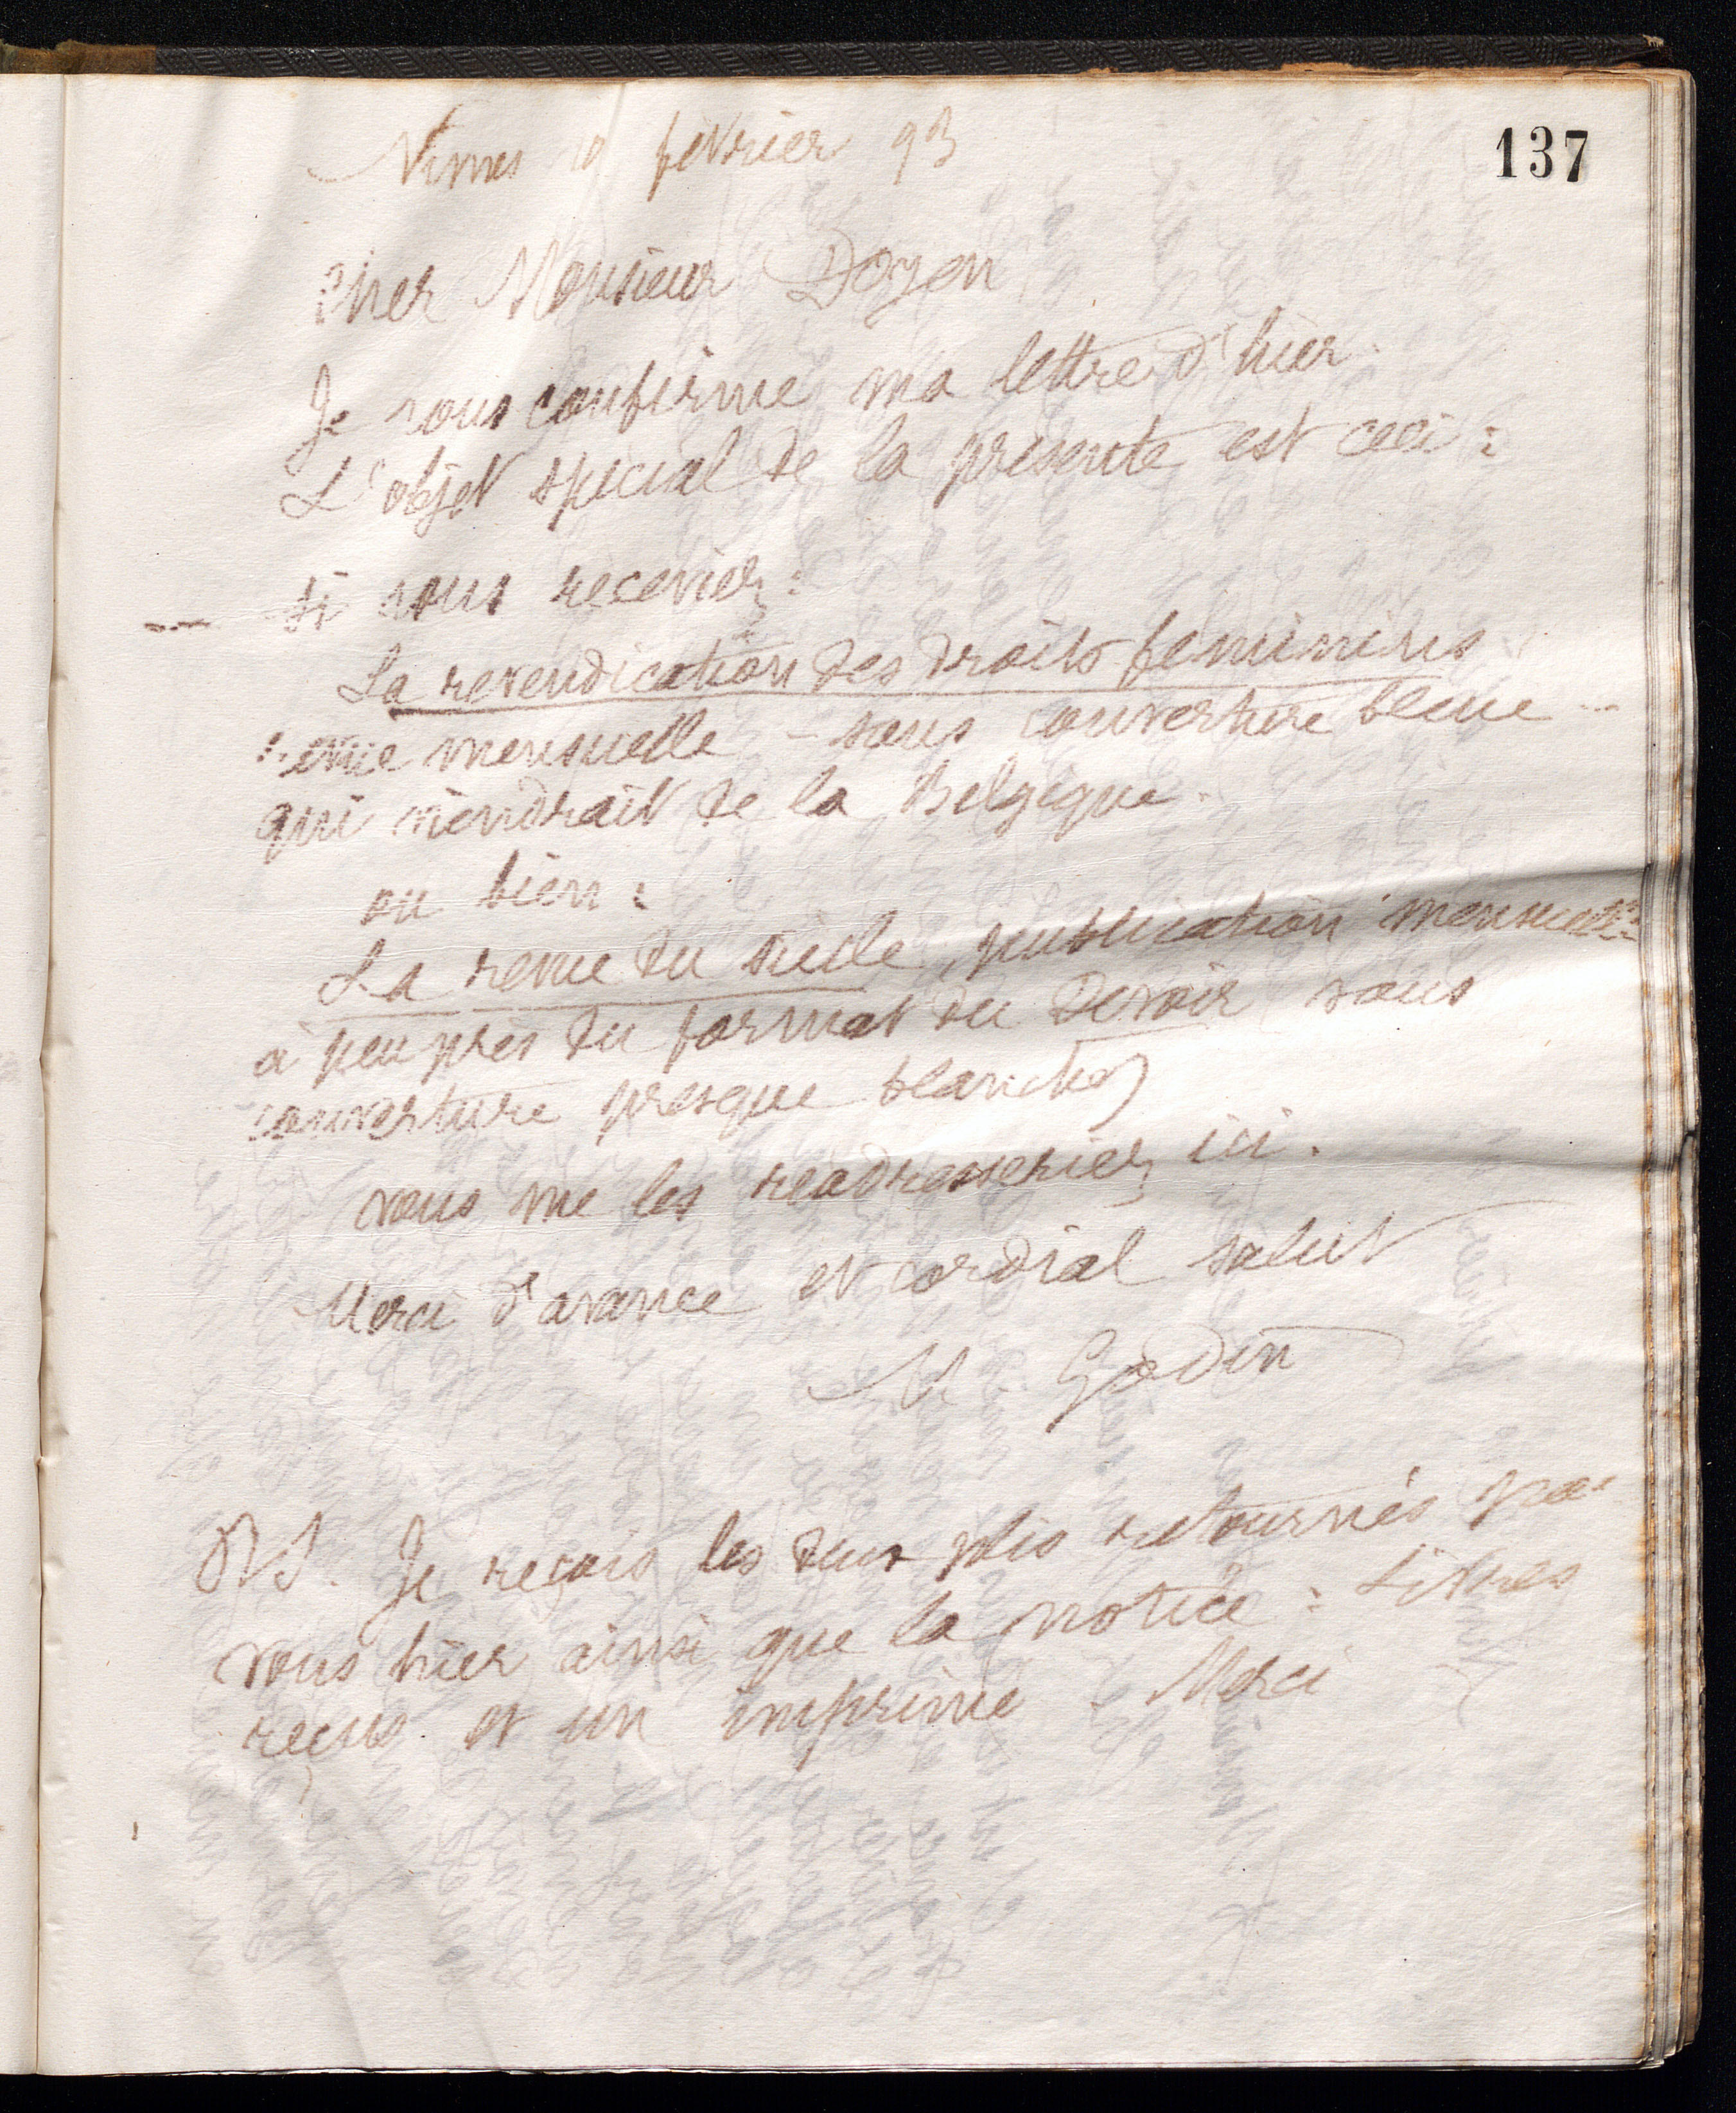 137
Nimes 10 février 93
Cher Monsieur Doyen
Je vous confirme ma lettre d'hier.
L'objet spécial de la présente est ceci :
si vous receviez :
La revendication des droits féminins
revue mensuelle - sous couverture bleue
qui viendrait de la Belgique.
ou bien :
La revue du siècle, publication mensuelle
à peu près du format du Devoir sous
couverture presque blanche
vous me les réadresseriez ici.
Merci d'avance et cordial salut
M. Godin
P.S. Je reçois les deux plis retournés par
vous hier ainsi que la notice : Livres
reçus et un imprimé. Merci